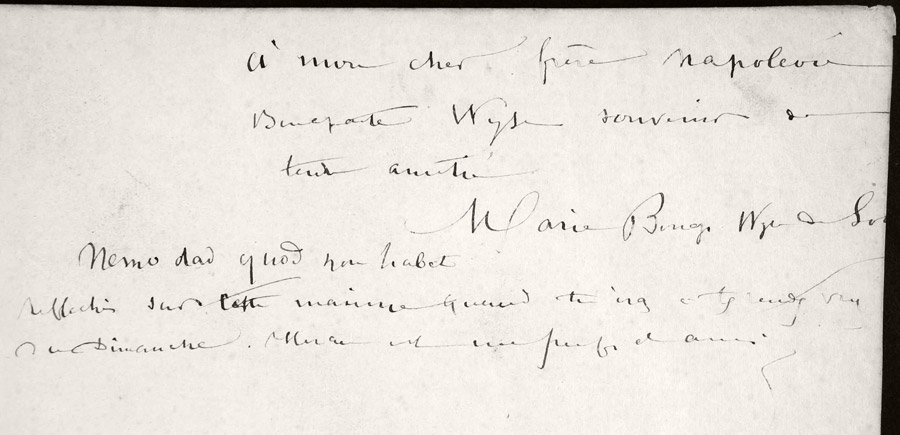 à mon cher frère napoleon
Bonaparte Wyse souvenir de
tendre amitié
Marie Bonap Wyse de Sol
Nemo dad quod non habet
reflection sur cette maxime quand
du Dimanche. est une preuve d'ami